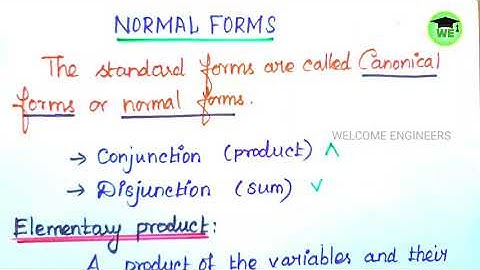 NORMAL FORMS
WE
The standard forms are called Canonical
forms or normal forms.
WELCOME ENGINEERS
→ Conjunction (product) ∧
→ Disjunction (sum) ∨
Elementary product:
A product of the variables and their